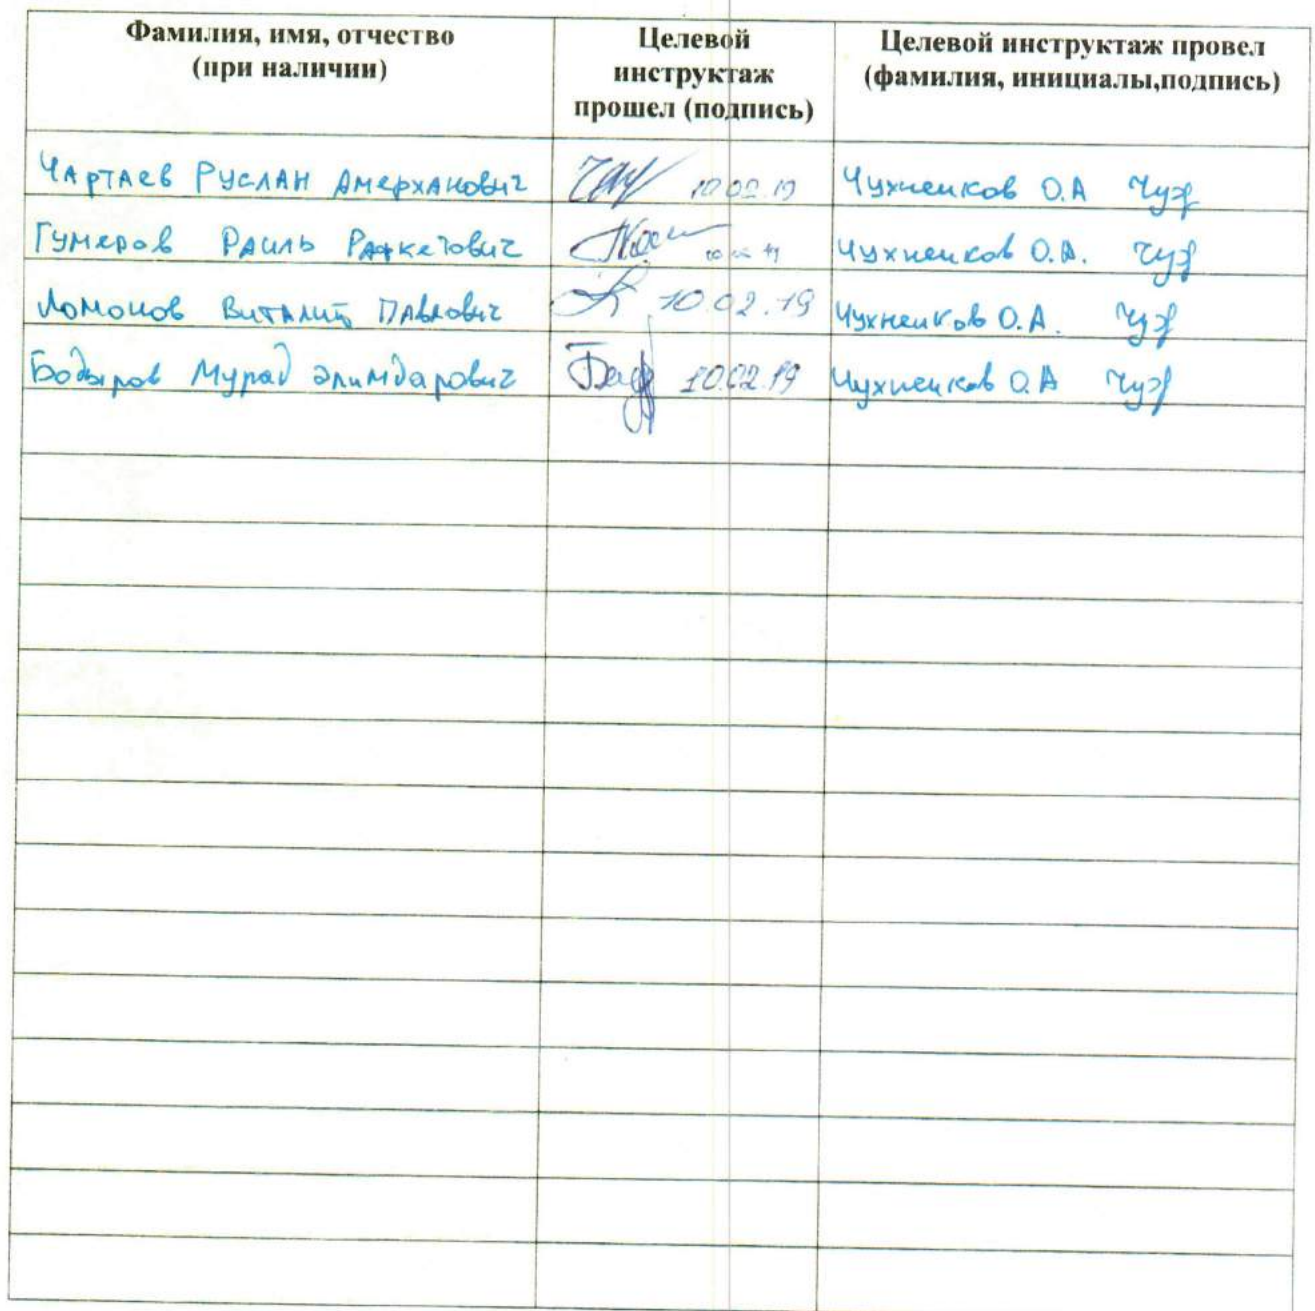 Фамилия, имя, отчество
(при наличии)
Целевой
инструктаж
прошел (подпись)
Целевой инструктаж провел
(фамилия, инициалы,подпись)
Чартаев Руслан Амерханович 10.02.19 Чухненков О.А
Гумеров Раиль Рафкетович Чухненков О.А.
Ломонов Виталий Павлович 10.02.19 Чухненков О.А.
Бодыров Мурад Элимдарович 10.02.19 Чухненков О.А